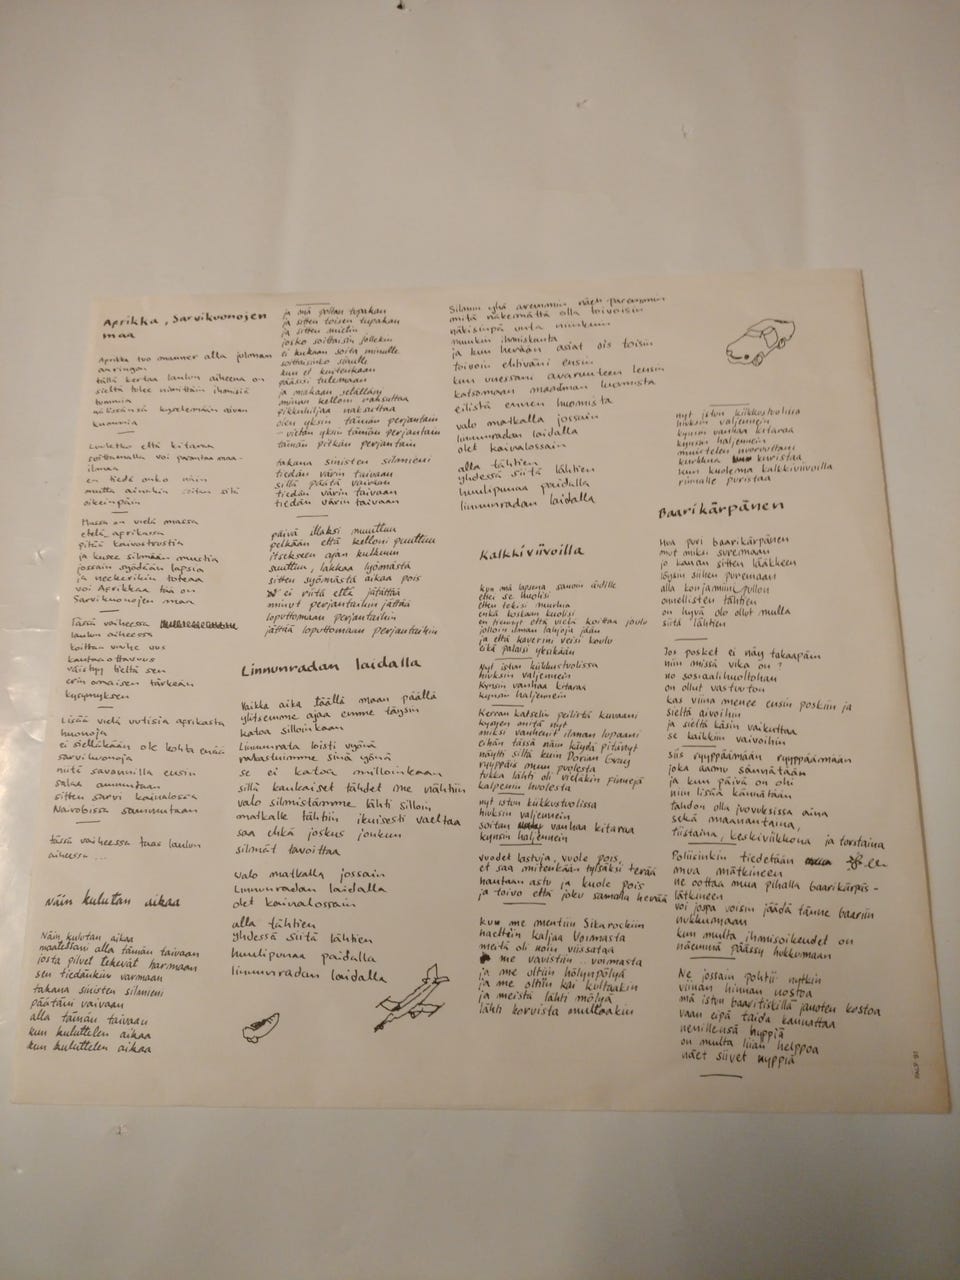 Aprikka, Sarvikuonojen
maa
Aprikka tuo manner alla juloman
auringon
tällä kertaa laulun aiheena on
sieltä tulee nimittäin ihmisiä
tummia
näköänsä kyselemään aivan
kuumia
Luuletko että kitaraa
soittamalla voi parantaa maa-
ilmaa
en tiedä onko näin
mutta ainakin soitan sitä
oikeinpäin
Massa on vielä massa
etelä aprikassa
pitää kaivostrustia
ja kusee silmään mustia
jossain syödään lapsia
ja neekerikin toteaa
voi Aprikkaa tää on
Sarvikuonojen maa
Tässä vaiheessa
laulun aiheessa
koittaa vaihe uus
kantaaottavuus
väistyy tieltä sen
erinomaisen tärkeän
kysymyksen
Lisää vielä uutisia aprikasta
huonoja
ei sielläkään ole kohta enää
sarvikuonoja
niitä savannilla ensin
salaa ammutaan
sitten sarvi kaivalossa
Nairobissa sammutaan
tässä vaiheessa taas laulun
aiheessa ...
Näin kulutan aikaa
Näin kulutan aikaa
maatessani alla tämän taivaan
josta pilvet tekevät harmaan
sen tiedänkin varmaan
takana sinisten silmieni
päätäni vaivaan
alla tämän taivaan
kun kuluttelen aikaa
kun kuluttelen aikaa
ja mä poltan tupakan
ja sitten toisen tupakan
ja sitten mietin
josko soittaisin jollekin
ei kukaan soita minulle
soittaisinko sinulle
kun et kuitenkaan
pääsisi tulemaan
ja makaan selälläni
minun kelloni naksuttaa
pikkuhiljaa naksuttaa
olen yksin tämän perjantain
- vietän yksin tämän perjantain
tämän pitkän perjantain
takana sinisten silmieni
tiedän värin taivaan
sillä päätä vaivaan
tiedän värin taivaan
tiedän värin taivaan
päivä illaksi muuttuu
pelkään että kelloni puuttuu
itsekseen ajan kulkuun
suuttuu, lakkaa lyömästä
sitten syömästä aikaa pois
ei riitä että jätättää
minut perjantaihin jättää
loputtomaan perjantaihin
jättää loputtomaan perjantaihin
Linnunradan laidalla
Vaikka aika täällä maan päällä
ylitsemme ajaa emme täysin
katoa silloinkaan
linnunrata loisti vyönä
rakastuimme sinä yönä
se ei katoa milloinkaan
sillä kaukaiset tähdet me nähtiin
valo silmistämme lähti silloin
matkalle tähtiin ikuisesti vaeltaa
saa ehkä joskus jonkun
silmät tavoittaa
valo matkalla jossain
Linnunradan laidalla
olet kaivalossain
alla tähtien
yhdessä siitä lähtien
huulipunaa paidalla
linnunradan laidalla
Silmin yhä avemmin näen paremmin
mitä näkemättä olla toivoisin
näkisinpä unta niinkuin
muukin ihmiskunta
ja kun herään asiat ois toisin
toivoin ehtiväni ensin
kun unessani avaruuteen lensin
katsomaan maailman luomista
eilistä ennen huomista
valo matkalla jossain
linnunradan laidalla
olet kaivalossain
alla tähtien
yhdessä siitä lähtien
huulipunaa paidalla
linnunradan laidalla
Kalkkiviivoilla
kun mä lapsena sanoin äidille
ettei se huolisi
etten tekisi murhia
enkä koskaan kuolisi
en tiennyt että vielä koittaa joulu
jolloin ilman lahjoja jään
ja että kaverini veisi koulu
eikä palaisi yksikään
Nyt istun kiikkustuolissa
hiuksin valjennein
kynsin vanhaa kitaraa
kynsin haljennein
Kerran katselin peilistä kuvaani
kysyen mitä nyt
miksi vanhenit ilman lupaani
eihän tässä näin käydä pitänyt
näytti siltä kuin Dorian Gray
ryyppäis mun puolesta
tukka lähti oli vieläkin finnejä
kalpenin huolesta
nyt istun kiikkustuolissa
hiuksin valjennein
soitan vanhaa kitaraa
kynsin haljennein
vuodet lastuja, vuole pois,
et saa mitenkään tylsäksi terää
hautaan astu ja kuole pois
ja toivo että joku samalla herää
kun me mentiin Sikarockiin
haettiin kaljaa Voimasta
meitä oli noin viissataa
me vavistiin .. voimasta
ja me oltiin hölynpölyä
ja me oltiin kai kultaakin
ja meistä lähti mölyä
lähti korvista multaakin
nyt istun kiikkustuolissa
hiuksin valjennein
kynsin vanhaa kitaraa
kynsin haljennein
muistelen nuoruuttani
kurkkua kuristaa
kun kuolema kalkkiviivoilla
riimille puristaa
Baarikärpänen
Mua puri baarikärpänen
mut miksi suremaan
jo kanan sitten lääkkeen
löysin siihen puremaan
alla konjamiinipullon
onnellisten tähtien
on hyvä olo ollut mulla
siitä lähtien
Jos posket ei näy takaapäin
niin missä vika on?
no sosiaalihuoltohan
on ollut vastuuton
kas viina menee ensin poskiin ja
sieltä aivoihin
ja sieltä käsin vaikuttaa
se kaikkiin vaivoihin
siis ryyppäämään ryyppäämään
joka aamu sännätään
ja kun päivä on ohi
niin lisää kännätään
tahdon olla juovuksissa aina
sekä maanantaina,
tiistaina, keskiviikkona ja torstaina
Poliisinkin tiedetään
mua mätkineen
ne oottaa mua pihalla baarikärpäs-
lätkineen
voi jospa voisin jäädä tänne baariin
nukkumaan
kun multa ihmisoikeudet on
näemmä päässy hukkumaan
Ne jossain pohtii nytkin
viinan hinnan nostoa
mä istun baaritiskillä juoten kostoa
vaan eipä taida kannattaa
nenillensä hyppiä
on multa liian helppoa
näet siivet nyppiä